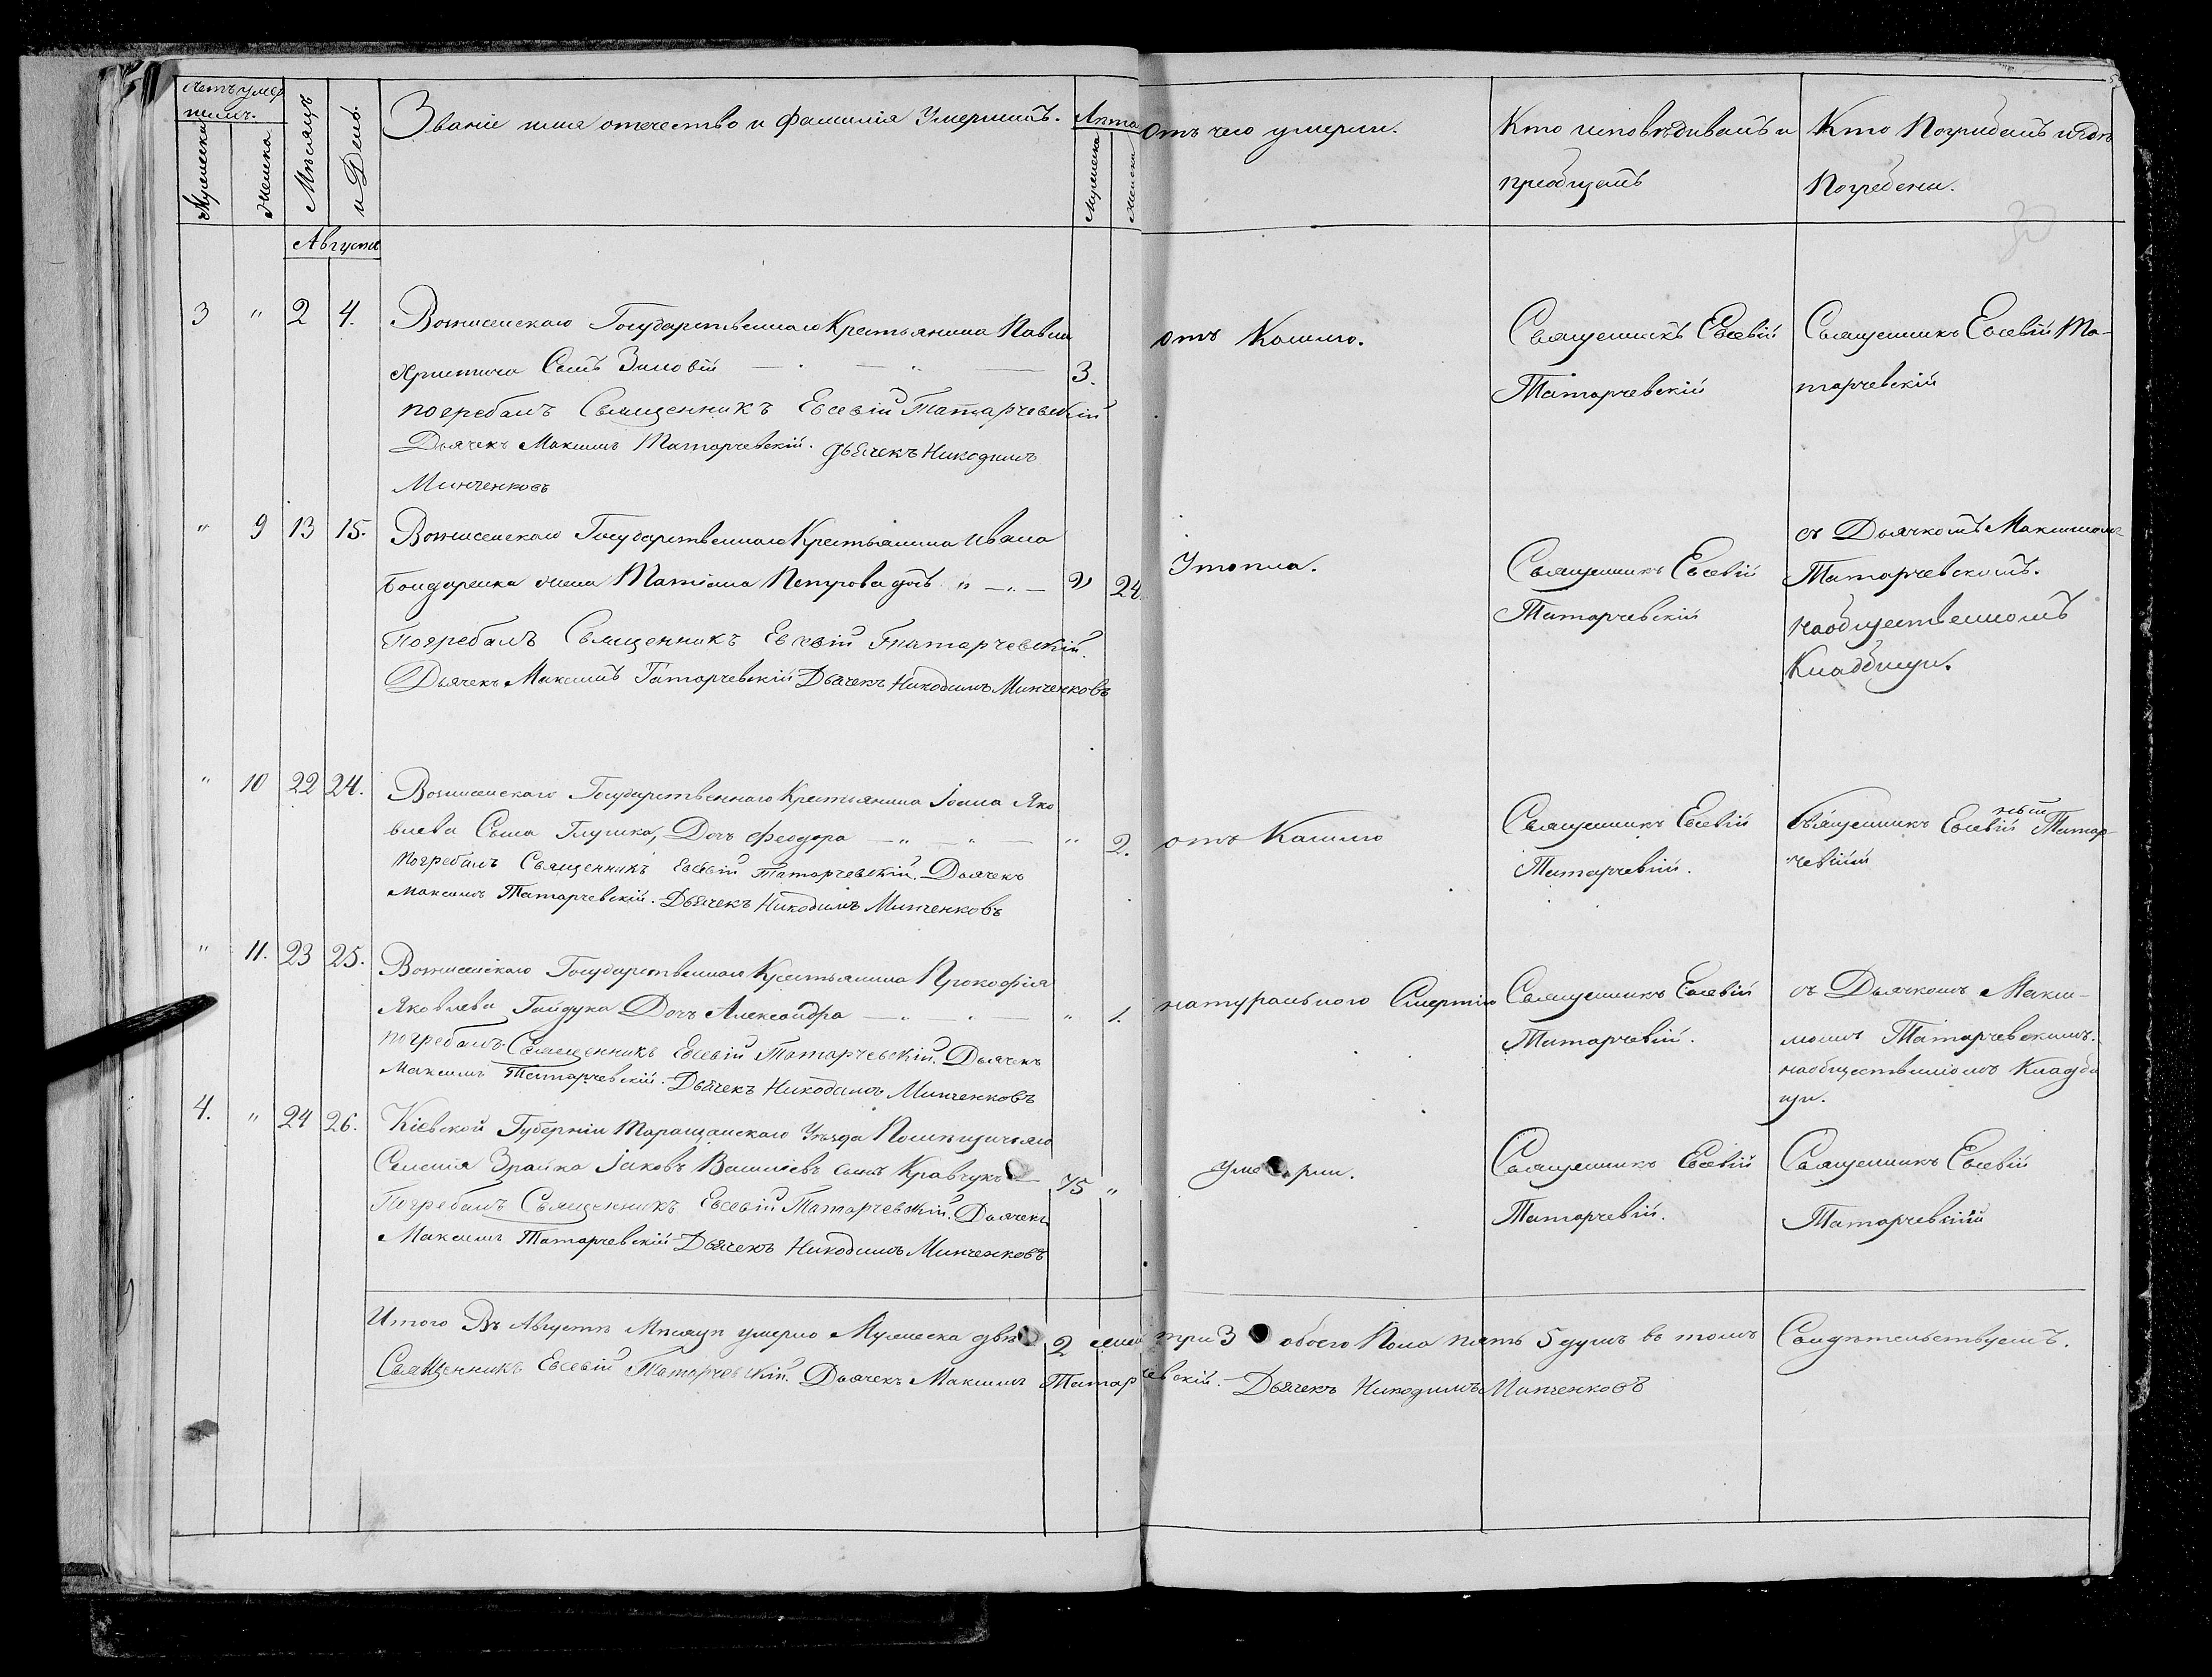 Счетъ умер
шихъ.
Мужеска
Женска
Мѣсяцъ
и День.
Званіе имя отечество и фамилія Умершихъ.
Лѣта
Мужеска
Женска
Отъ чего умерли.
Кто исповѣдивалъ и
пріобщалъ
Кто Погрибалъ и гдѣ
Погребены.
Августа
3 " 2 4. Вознесенскаго Государственнаго Крестьянина Павла
Сынъ Зиновій — " — " — 3.
погребалъ Священникъ Евсевій Татарчевскій
Дьячекъ Максимъ Татарчевскій. Дьячекъ Никодимъ
Минченковъ
отъ Кашлю.
Священникъ Евсевій
Татарчевскій
Священникъ Евсевій Та-
тарчевскій
" 9 13 15. Вознесенскаго Государственнаго Крестьянина Ивана
Бондаренка жена Татіана Петрова дочь " — " — " 24.
Погребалъ Священникъ Евсевій Татарчевскій.
Дьячекъ Максимъ Татарчевскій Дьячекъ Никодимъ Минченковъ
Утопла.
Священникъ Евсевій
Татарчевскій
съ Дьячкомъ Максимомъ
Татарчевскомъ.
наобщественномъ
Кладбищи.
" 10 22 24. Вознесенскаго Государственнаго Крестьянина Іоана Яко
влева Сына Глушка, Дочь Феодора — " — " — " 2.
Погребалъ Священникъ Евсевій Татарчевскій. Дьячекъ
Максимъ Татарчевскій. Дьячекъ Никодимъ Минченковъ
отъ Кашлю
Священникъ Евсевій
Татарчевій.
Священникъ Евсевій Татар-
чевскій
" 11. 23 25. Вознесенскаго Государственнаго Крестьянина Прокофія
Яковлева Гайдука Дочь Александра — " — " — " 1.
погребалъ Священникъ Евсевій Татарчевскій. Дьячекъ
Максимъ Татарчевскій. Дьячекъ Никодимъ Минченковъ
натуральною Смертію
Священникъ Евсевій
Татарчевій.
съ Дьячкомъ Макси-
момъ Татарчевскимъ.
наобщественномъ Кладби
щи.
4. " 24 26. Кіевской Губерніи Таращанскаго Уѣзда Помѣщичьяго
Селенія Зрайка Іаковъ Василіевъ сынъ Кравчукъ — 75 "
Погребалъ Священникъ Евсевій Татарчевскій. Дьячекъ
Максимъ Татарчевскій Дьячекъ Никодимъ Минченковъ
Священникъ Евсевій
Татарчевій.
Священникъ Евсевій
Татарчевскій
Итого Въ Августѣ Мѣсяцѣ умерло Мужеска два 2 жен три 3 обоего Пола пять 5 душъ въ томъ Свидѣтельствуемъ.
Священникъ Евсевій Татарчевскій. Дьячекъ Максимъ Татарчевскій. Дьячекъ Никодимъ Минченковъ